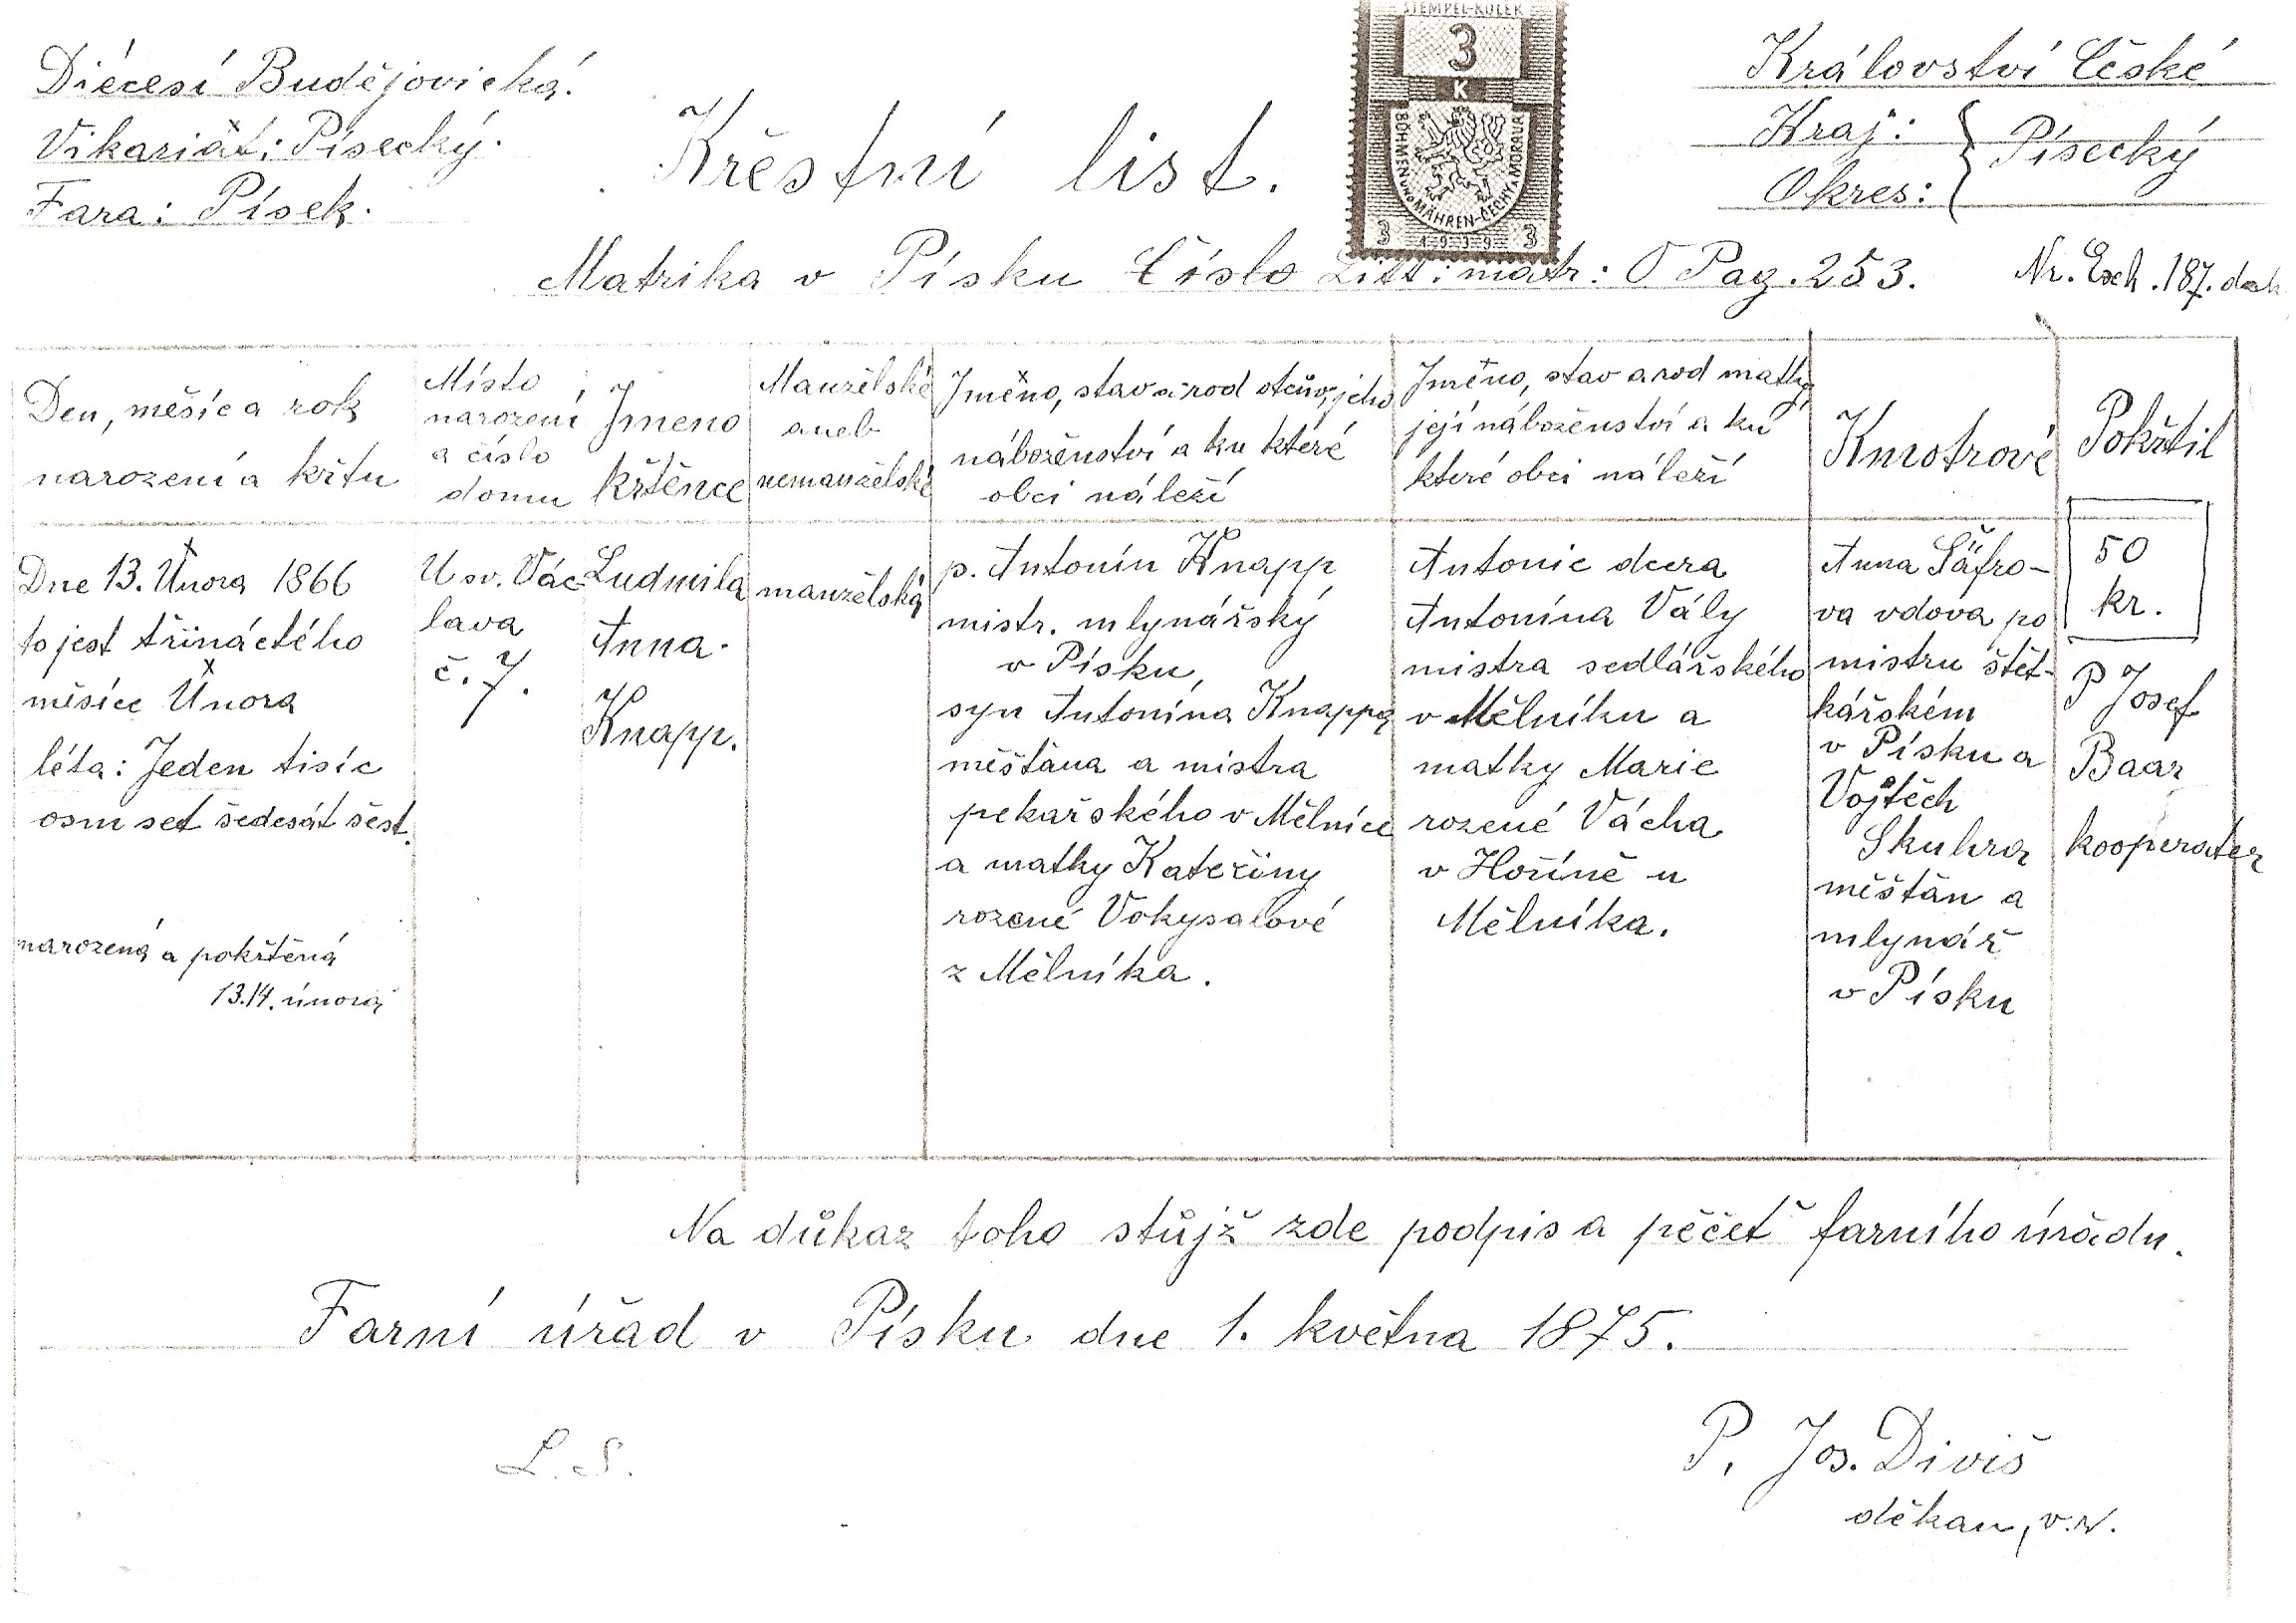 Diécesí Budějovická.
Vikariát: Písecký.
Fara: Písek.
STEMPEL-KOLEK
3
K
BÖHMEN UND MÄHREN-ČECHY A MORAVA
3 1939 3
Království České
Kraj:
Okres:
Písecký
Křestní list.
Matrika v Písku Číslo Litt: matr: O Pag. 253. Nr. Exh. 187. dek
Den, měsíc a rok
narození a křtu
Místo
narození
a číslo
domu
Jmeno
křtěnce
Manželské
aneb
nemanželské
Jméno, stav a rod otcův, jeho
náboženství a ku které
obci náleží
Jméno, stav a rod matky,
její náboženství a ku
které obci náleží
Kmotrové
Pokřtil
Dne 13. Února 1866
to jest třináctého
měsíce Února
léta: Jeden tisíc
osm set šedesát šest.
narozená a pokřtěná
13.14. února
U sv. Vác-
lava
č. 7.
Ludmila
Anna.
Knapp.
manželská
p. Antonín Knapp
mistr. mlynářský
v Písku,
syn Antonína Knappa
měšťana a mistra
pekařského v Mělníce
a matky Kateřiny
rozené Vokysalové
z Mělníka.
Antonie dcera
Antonína Vály
mistra sedlářského
v Mělníku a
matky Marie
rozené Vácha
v Hoříně u
Mělníka.
Anna Šáfro-
va vdova po
mistru štět-
kářském
v Písku a
Vojtěch
Skuhra
měštán a
mlynář
v Písku
50
kr.
P Josef
Baar
kooperater
Na důkaz toho stůjž zde podpis a pěčeť farního úřadu.
Farní úřad v Písku dne 1. května 1875.
L. S.
P. Jos. Diviš
děkan, v.r.